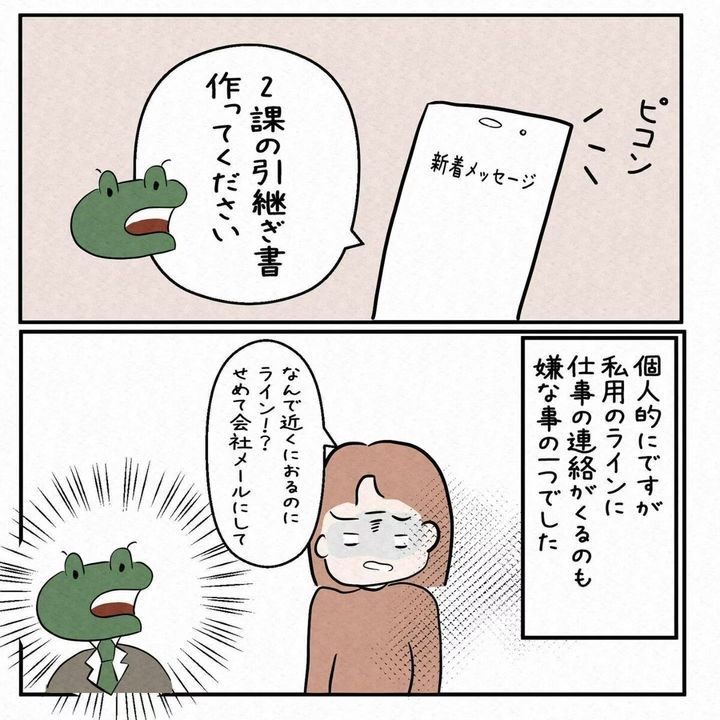 ピコン
新着メッセージ
2課の引継ぎ書
作ってください
個人的にですが
私用のラインに
仕事の連絡がくるのも
嫌な事の一つでした
なんで近くにおるのに
ライン!?
せめて会社メールにして